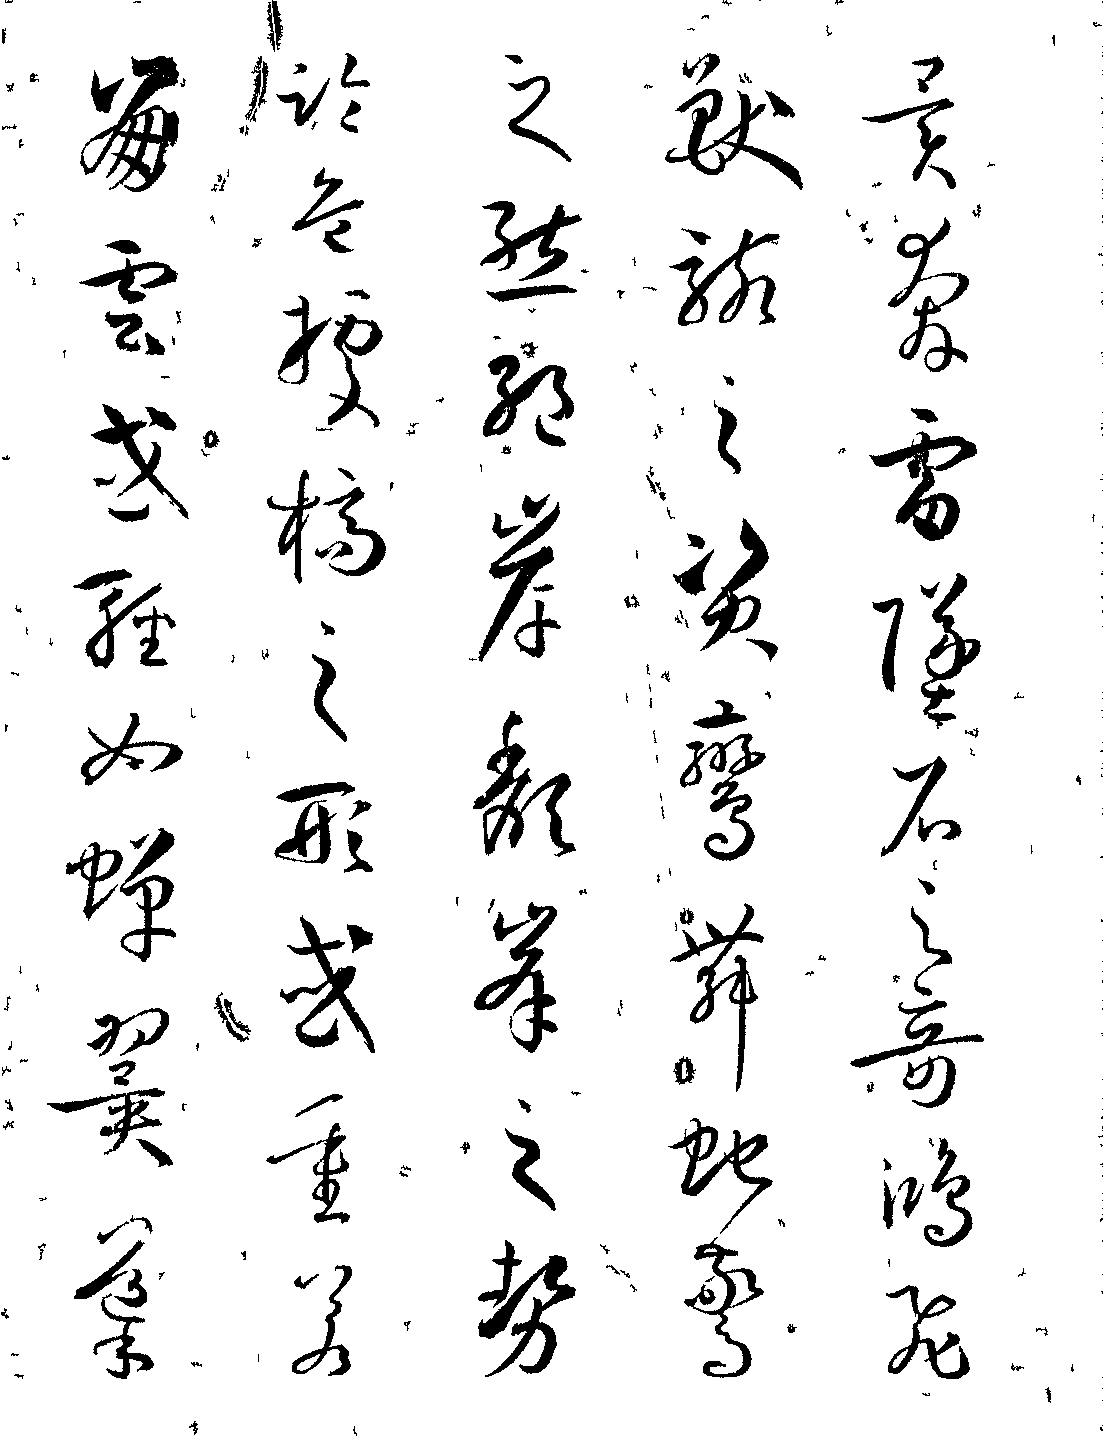 異奔雷墜石之奇鴻飛
獸駭之資鸞舞蛇驚
之態絕岸頹峯之勢
臨危據槁之形或重若
崩雲或輕如蟬翼導